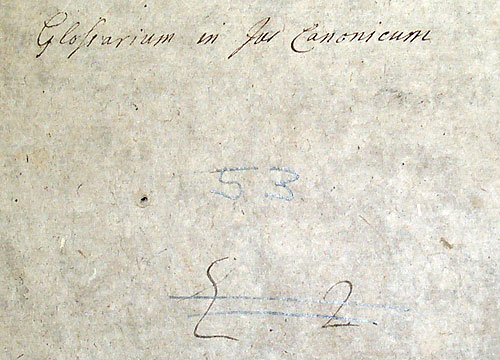 Glossarium in Jus Canonicum
53
L. 2.